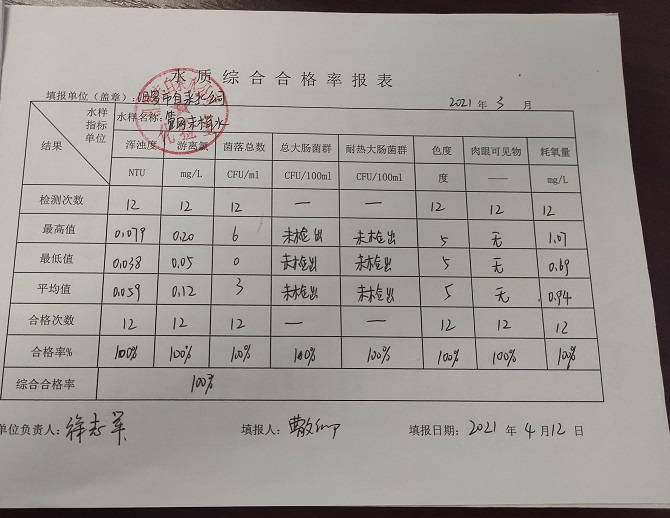 水质综合合格率报表
填报单位（盖章）：自来水公司 2021 年 3 月
水样 指标 单位 结果 水样名称：管网末梢水
浑浊度 游离氯 菌落总数 总大肠菌群 耐热大肠菌群 色度 肉眼可见物 耗氧量
NTU mg/L CFU/ml CFU/100ml CFU/100ml 度 —— mg/L
检测次数 12 12 12 — — 12 12 12
最高值 0.079 0.20 6 未检出 未检出 5 无 1.07
最低值 0.038 0.05 0 未检出 未检出 5 无 0.69
平均值 0.059 0.12 3 未检出 未检出 5 无 0.94
合格次数 12 12 12 — — 12 12 12
合格率% 100% 100% 100% 100% 100% 100% 100% 100%
综合合格率 100%
单位负责人：徐志军 填报人： 填报日期：2021 年 4 月 12 日